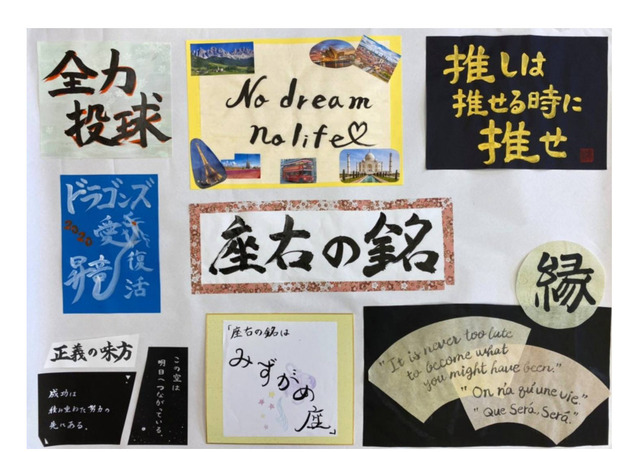 全力
投球
No dream
no life
推しは
推せる時に
推せ
ドラゴンズ
2020
愛を
昇竜
復活
座右の銘
縁
正義の味方
成功は
積み重ねた努力の
先へある。
この空は
明日へつながっている。
「座右の銘は
みずがめ
座」
"It is never too late
to become what
you might have been."
"On n'a qu'une vie."
"Que Será, Será."